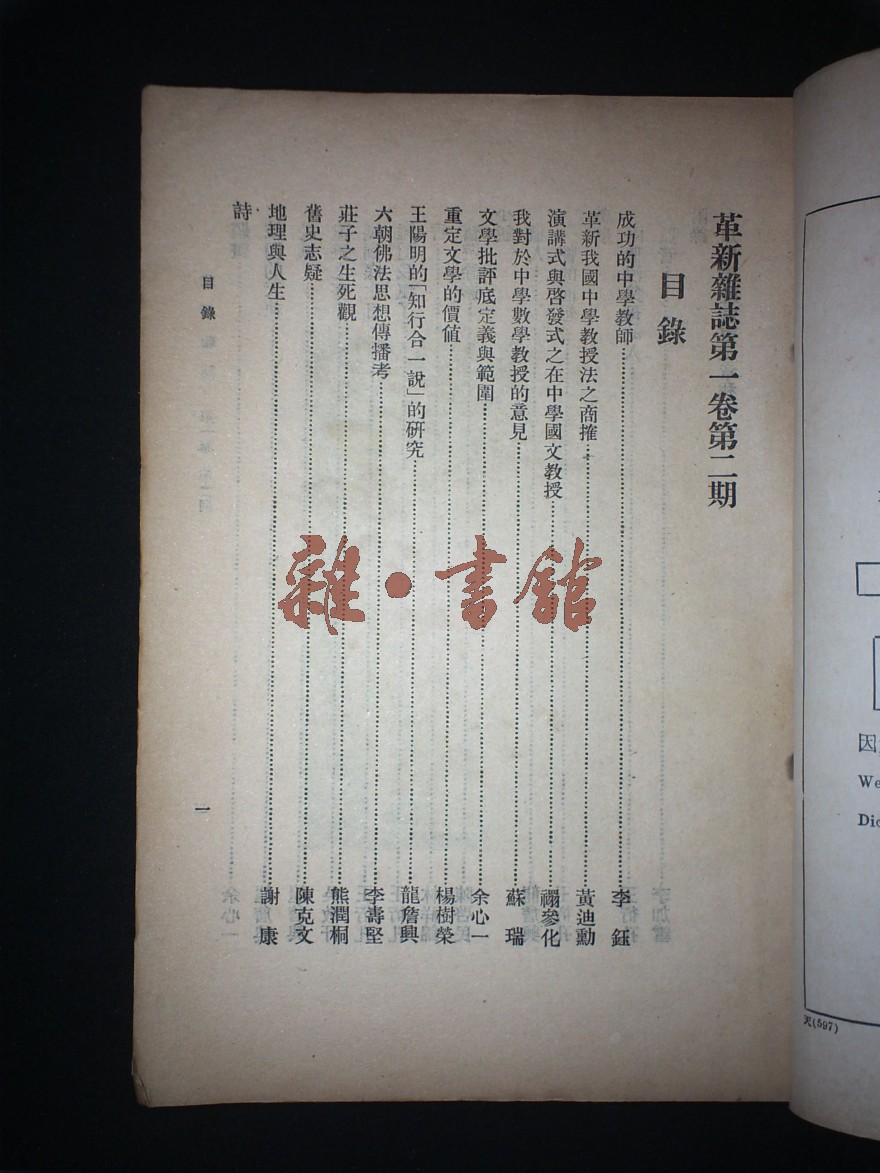 革新雜誌第一卷第二期
目錄
成功的中學教師……李鈺
革新我國中學教授法之商搉……黃迪勳
演講式與啓發式之在中學國文教授……禤參化
我對於中學數學教授的意見……蘇瑞
文學批評底定義與範圍……余心一
重定文學的價值……楊樹榮
王陽明的「知行合一說」的研究……龍詹興
六朝佛法思想傳播考……李壽堅
莊子之生死觀……熊潤桐
舊史志疑……陳克文
地理與人生……謝康
詩
目錄
一
雜·書館
因
We
Dic
天(597)